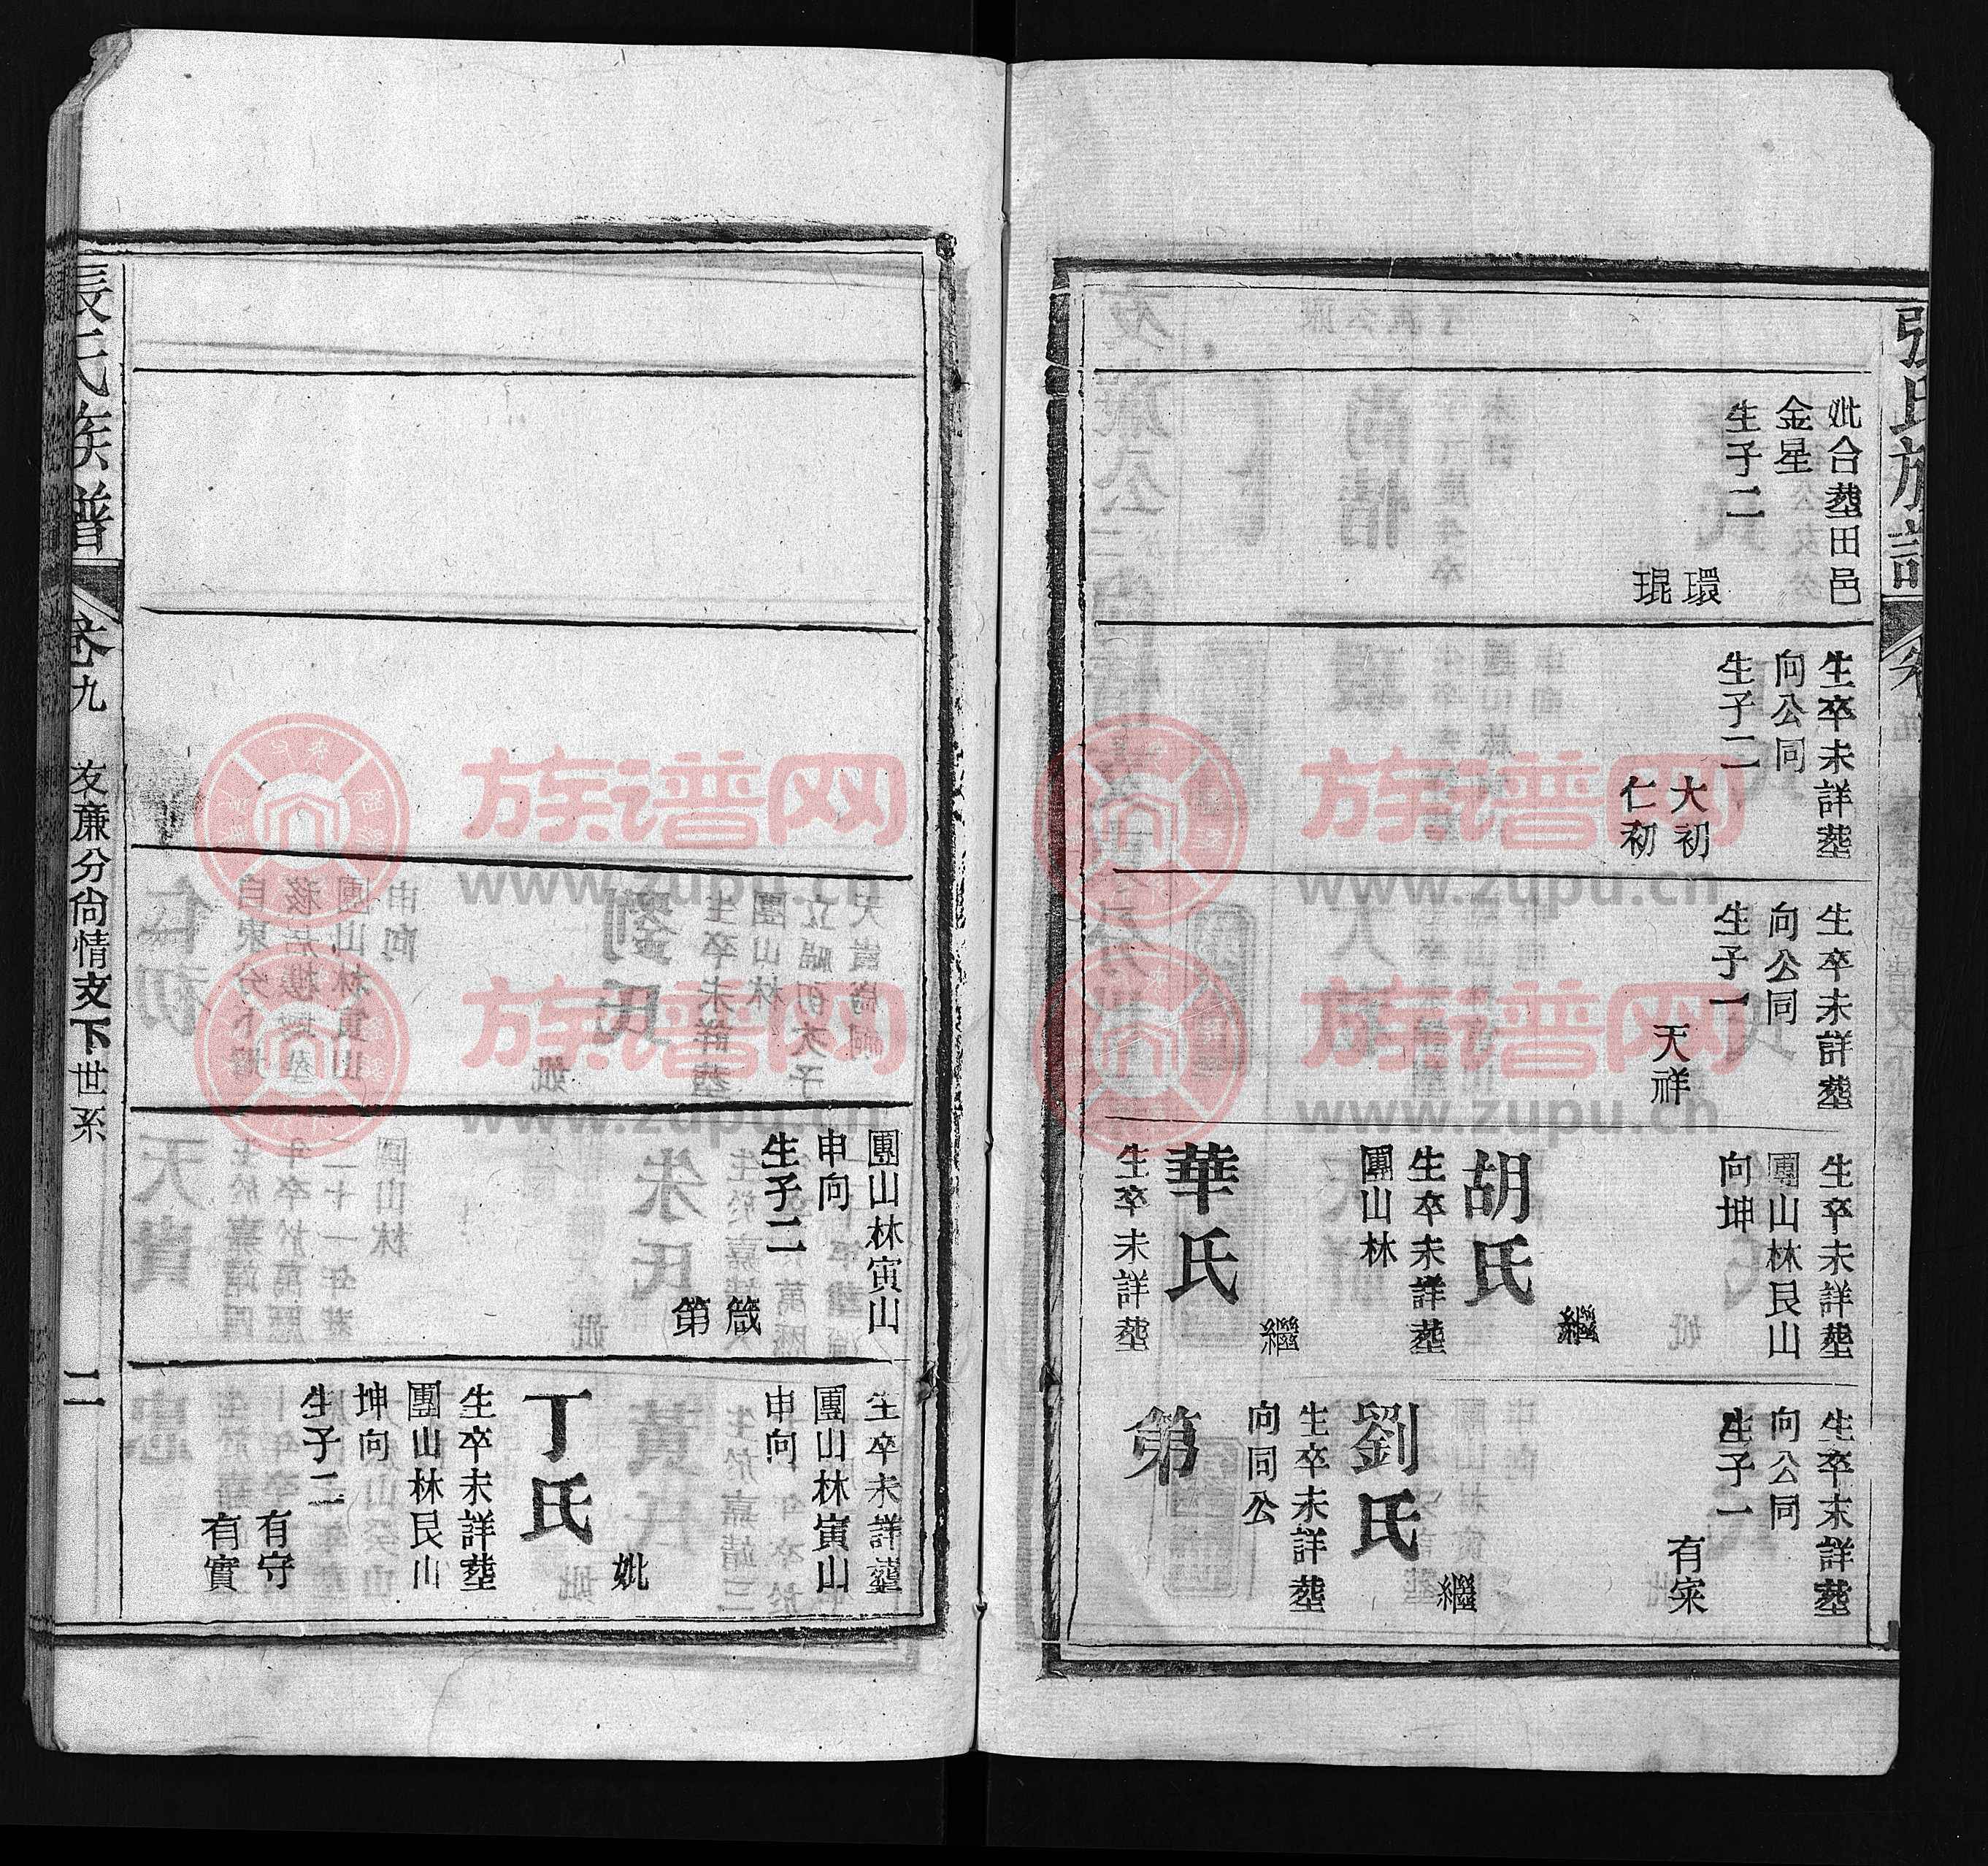 張氏族譜
妣合塟田邑
金星
生子二
環
琨
生卒未詳塟
向公同
生子二
大初
仁初
生卒未詳塟
向公同
生子一
天祥
生卒未詳塟
團山林艮山
向坤
繼
胡氏
生卒未詳塟
團山林
繼
華氏
生卒未詳塟
生卒未詳塟
向公同
生子一
有寀
繼
劉氏
生卒未詳塟
向同公
第
團山林寅山
申向
生子二
箴
第
生卒未詳塟
團山林寅山
申向
妣
丁氏
生卒未詳塟
團山林艮山
坤向
生子二
有守
有實
張氏族譜
卷九
友廉分尙情支下世系
二
族谱网
www.zupu.cn
族谱网
www.zupu.cn
族谱网
www.zupu.cn
族谱网
www.zupu.cn